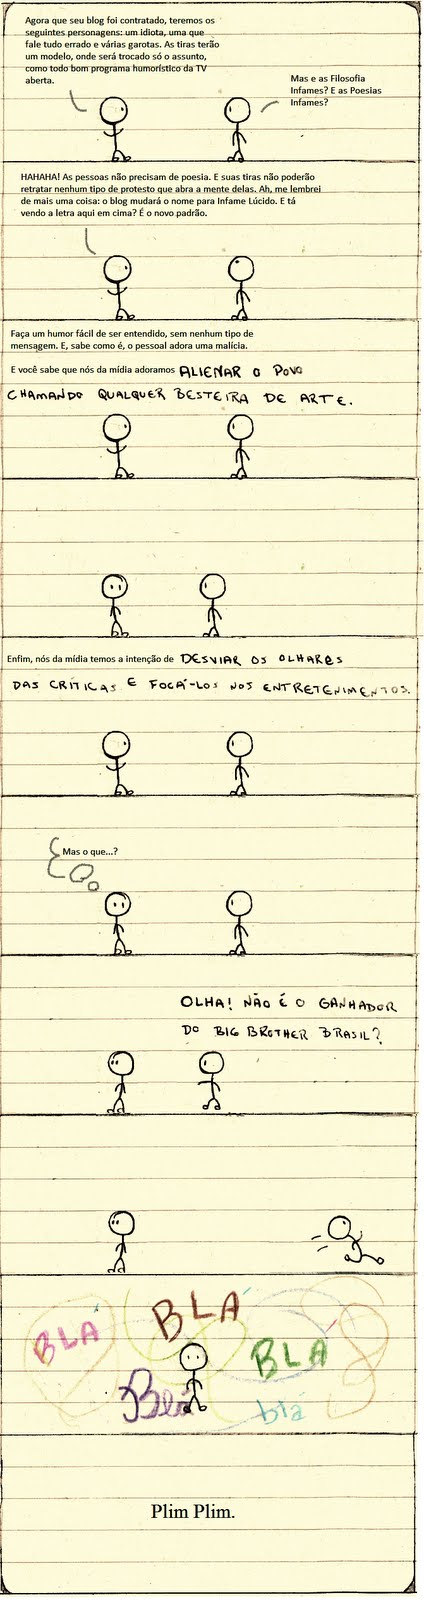 Agora que seu blog foi contratado, teremos os
seguintes personagens: um idiota, uma que
fale tudo errado e várias garotas. As tiras terão
um modelo, onde será trocado só o assunto,
como todo bom programa humorístico da TV
aberta.
Mas e as Filosofia
Infames? E as Poesias
Infames?
HAHAHA! As pessoas não precisam de poesia. E suas tiras não poderão
retratar nenhum tipo de protesto que abra a mente delas. Ah, me lembrei
de mais uma coisa: o blog mudará o nome para Infame Lúcido. E tá
vendo a letra aqui em cima? É o novo padrão.
Faça um humor fácil de ser entendido, sem nenhum tipo de
mensagem. E, sabe como é, o pessoal adora uma malícia.
E você sabe que nós da mídia adoramos ALIENAR O POVO
CHAMANDO QUALQUER BESTEIRA DE ARTE.
Enfim, nós da mídia temos a intenção de DESVIAR OS OLHARES
DAS CRÍTICAS E FOCÁ-LOS NOS ENTRETENIMENTOS.
Mas o que...?
OLHA! NÃO É O GANHADOR
DO BIG BROTHER BRASIL?
BLÁ
BLÁ
BLÁ
Blá
blá
Plim Plim.